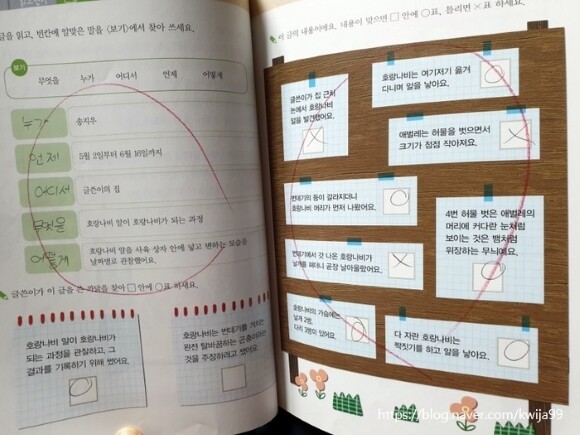 글을 읽고, 빈칸에 알맞은 말을 <보기>에서 찾아 쓰세요.
보기
무엇을 누가 어디서 언제 어떻게
누가 송지우
언제 5월 2일부터 6월 16일까지
어디서 글쓴이의 집
무엇을 호랑나비 알이 호랑나비가 되는 과정
어떻게 호랑나비 알을 사육 상자 안에 넣고 변하는 모습을
날짜별로 관찰했어요.
글쓴이가 이 글을 쓴 까닭을 찾아 □ 안에 ○표 하세요.
호랑나비 알이 호랑나비가
되는 과정을 관찰하고, 그
결과를 기록하기 위해 썼어요.
○
호랑나비는 번데기를 거치는
완전 탈바꿈하는 곤충이라는
것을 주장하려고 썼어요.
이 글의 내용이에요. 내용이 맞으면 □ 안에 ○표, 틀리면 ×표 하세요.
글쓴이가 집 근처
논에서 호랑나비
알을 발견했어요.
×
호랑나비는 여기저기 옮겨
다니며 알을 낳아요.
○
애벌레는 허물을 벗으면서
크기가 점점 작아져요.
×
번데기의 등이 갈라지더니
호랑나비 머리가 먼저 나왔어요.
○
4번 허물 벗은 애벌레의
머리에 커다란 눈처럼
보이는 것은 뱀처럼
위장하는 무늬예요.
○
번데기에서 갓 나온 호랑나비가
날개를 펴더니 곧장 날아올랐어요.
×
호랑나비의 가슴에는
날개 2쌍,
다리 3쌍이 있어요.
○
다 자란 호랑나비는
짝짓기를 하고 알을 낳아요.
○
https://blog.naver.com/kwija99